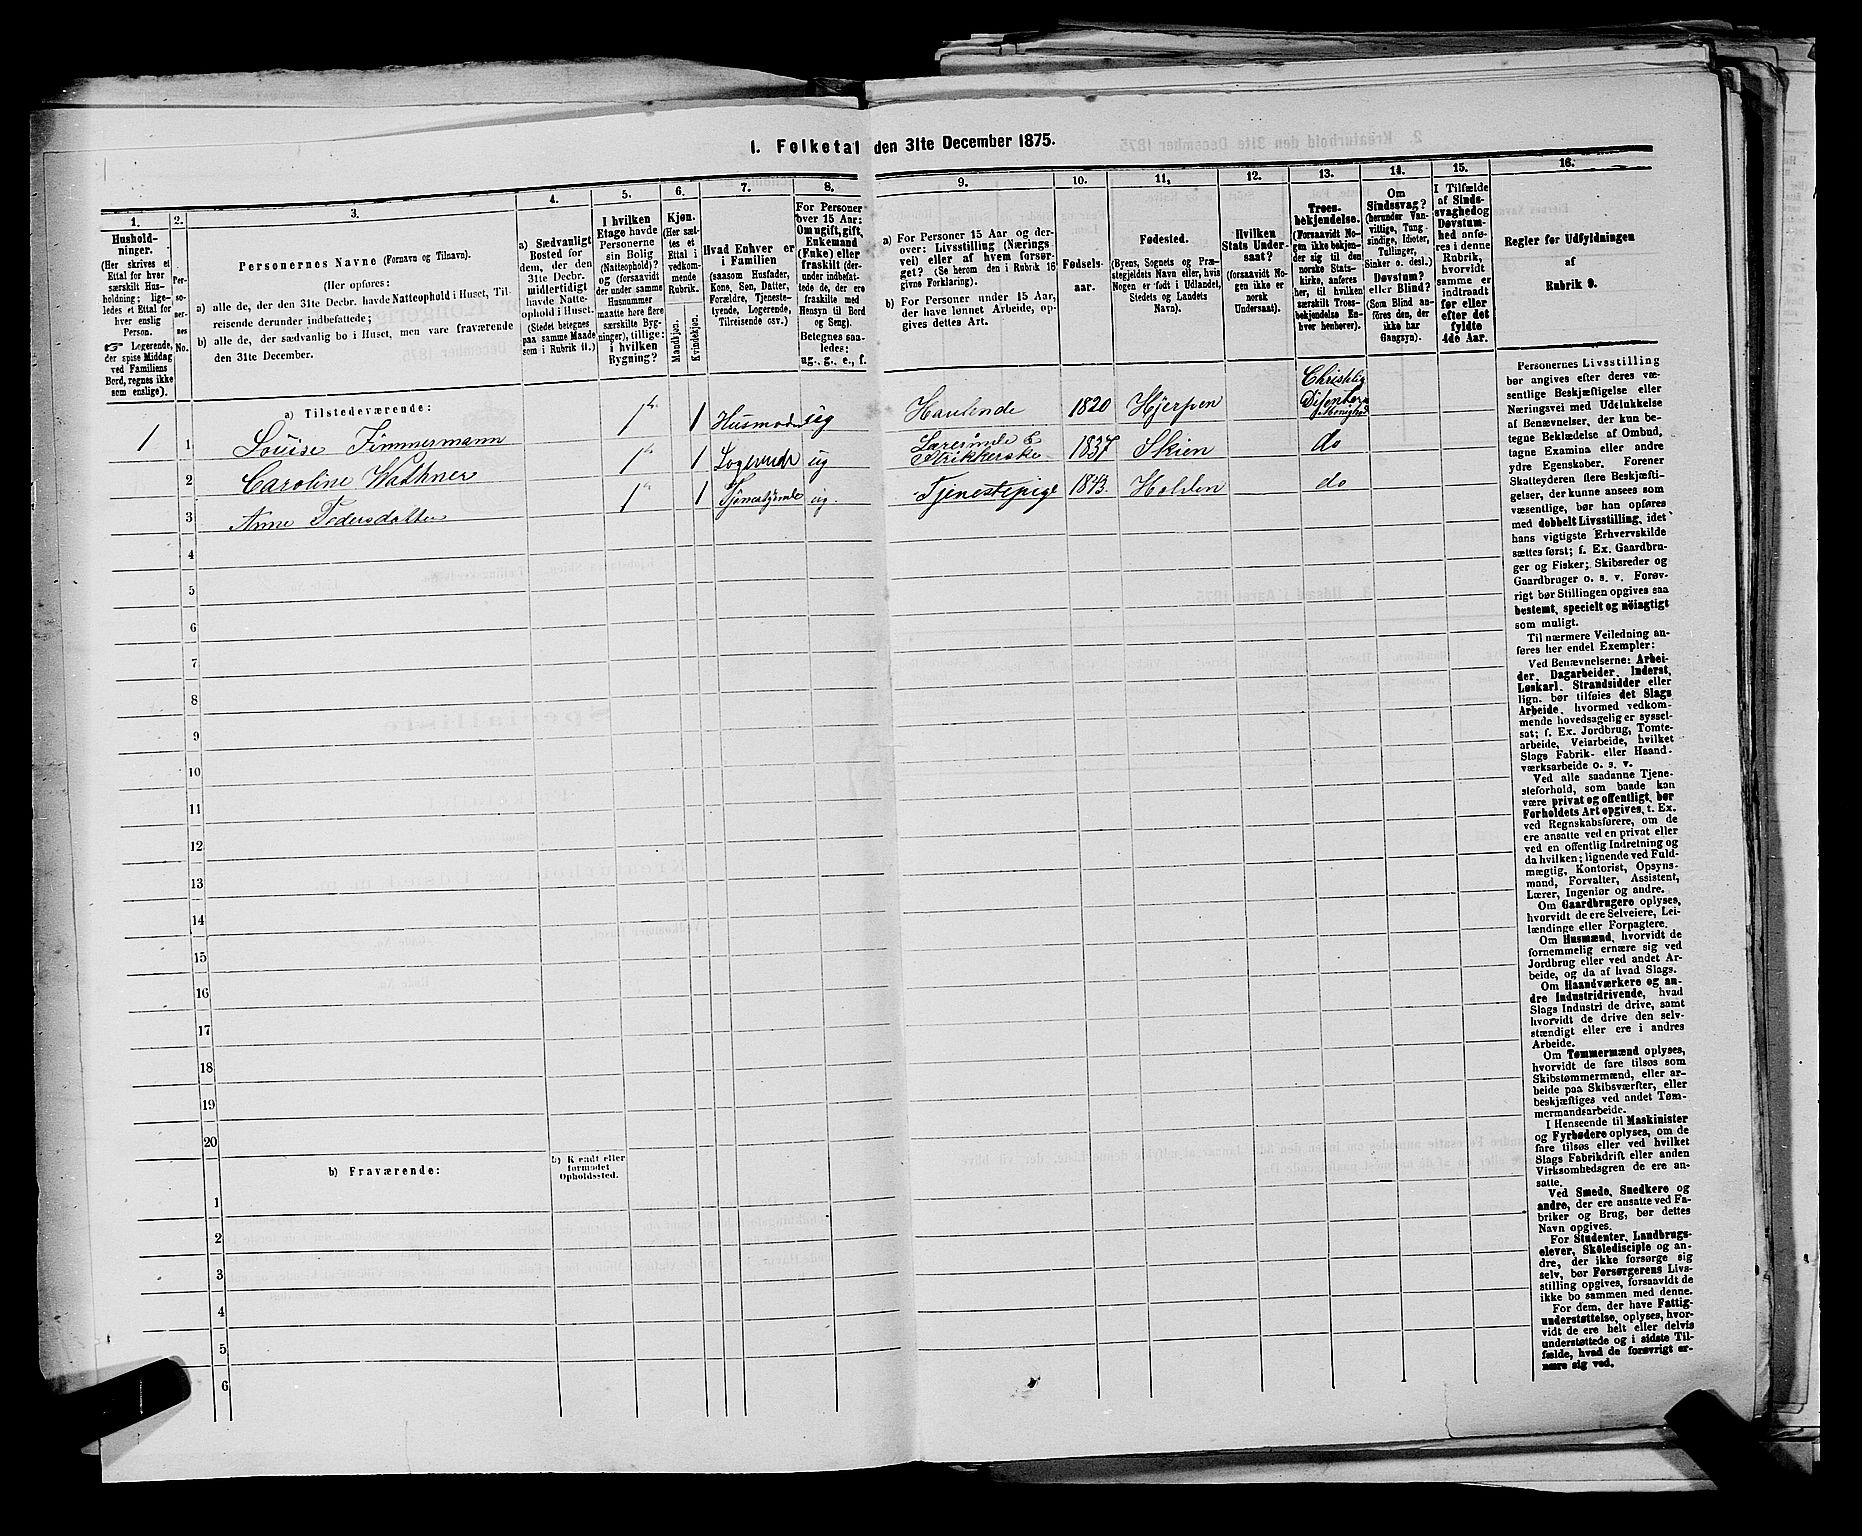 I. Folketal den 31te December 1875.
1.
Hushold-
ninger.
(Her skrives et
Ettal for hver
særskilt Hus-
holdning; lige-
ledes et Ettal for
hver enslig
Person.
☞ Logerende,
der spise Middag
ved Familiens
Bord, regnes ikke
som enslige).
2.
Per-
so-
ner-
nes
No.
3.
Personernes Navne (Fornavn og Tilnavn).
(Her opføres:
a) alle de, der den 31te Decbr. havde Natteophold i Huset, Til-
reisende derunder indbefattede;
b) alle de, der sædvanlig bo i Huset, men vare fraværende
den 31te December.
4.
a) Sædvanligt
Bosted for
dem, der den
31te Decbr.
midlertidigt
havde Natte-
ophold i Huset.
(Stedet betegnes
paa samme Maade
som i Rubrik 11.)
5.
I hvilken
Etage havde
Personerne
sin Bolig
(Natteophold)?
og (forsaavidt
der under samme
Husnummer
maatte høre flere
særskilte Byg-
ninger), tillige:
i hvilken
Bygning?
6.
Kjøn.
(Her sæt-
tes et
Ettal i
vedkom-
mende
Rubrik.
Mandkjøn.
Kvindekjøn.
7.
Hvad Enhver er
i Familien
(saasom Husfader,
Kone, Søn, Datter,
Forældre, Tjeneste-
tyende, Logerende,
Tilreisende osv.)
8.
For Personer
over 15 Aar:
Om ugift, gift,
Enkemand
(Enke) eller
fraskilt (der-
under indbefat-
tede de, der ere
fraskilte med
Hensyn til Bord
og Seng).
Betegnes saa-
ledes:
ug., g., e., f.
9.
a) For Personer 15 Aar og der-
over: Livsstilling (Nærings
vei) eller af hvem forsør-
get? (Se herom den i Rubrik 16
givne Forklaring).
b) For Personer under 15 Aar,
der have lønnet Arbeide, op-
gives dettes Art.
10.
Fødsels-
aar.
11,
Fødested.
(Byens, Sognets og Præ-
stegjeldets Navn eller, hvis
Nogen er født i Udlandet,
Stedets og Landets
Navn).
12.
Hvilken
Stats Under-
saat?
(forsaavidt No-
gen ikke er
norsk
Undersaat).
13.
Troes-
bekjendelse.
(Forsaavidt No-
gen ikke bekjen-
der sig til den
norske Stats-
kirke, anføres
her, til hvilken
særskilt Troes-
bekjendelse En-
hver henhører).
14.
Om
Sindssvag?
(herunder Van-
vittige, Tung-
sindige, Idioter,
Tullinger,
Sinker o. desl.)
Døvstum?
eller Blind?
(Som Blind an-
føres den, der
ikke har
Gangsyn).
15.
I Tilfælde
af Sinds-
svaghed og
Døvstum-
hed anfø-
res i denne
Rubrik,
hvorvidt
samme er
indtraadt
før eller
efter det
fyldte
4de Aar.
16.
Regler for Udfyldningen
af
Rubrik 9.
a) Tilstedeværende:
1 1 Louise Zimmermann 1 Husmoder ug Havende 1820 Hjerpen Christelig Disenter Menighed
2 Caroline Wathner 1 Logerende ug Lærerinde & Strikkerske 1837 Skien do
3 Anne Pedersdatter 1 Tjenestepige 1843. Holden do
4
5
6
7
8
9
10
11
12
13
14
15
16
17
18
19
20
b) Fraværende:
b) Kjendt eller
formodet
Opholdssted.
1
2
3
4
5
6
Personernes Livsstilling
bør angives efter deres væ-
sentlige Beskjæftigelse eller
Næringsvei med Udelukkelse
af Benævnelser, der kun be-
tegne Beklædelse af Ombud,
tagne Examina eller andre
ydre Egenskaber. Forener
Skatteyderen flere Beskjæfti-
gelser, der kunne ansees som
væsentlige, bør han opføres
med dobbelt Livsstilling, idet
hans vigtigste Erhvervskilde
sættes først; f. Ex. Gaardbru-
ger og Fisker; Skibsreder og
Gaardbruger o. s. v. Forøv-
rigt bør Stillingen opgives saa
bestemt, specielt og nöiagtigt
som muligt.
Til nærmere Veiledning an-
føres her endel Exempler:
Ved Benævnelserne: Arbei-
der, Dagarbeider, Inderst,
Løskarl, Strandsidder eller
lign. bør tilføies det Slags
Arbeide, hvormed vedkom-
mende hovedsagelig er syssel-
sat; f. Ex. Jordbrug, Tomte-
arbeide, Veiarbeide, hvilket
Slags Fabrik- eller Haand-
værksarbeide o. s. v.
Ved alle saadanne Tjene-
steforhold, som baade kan
være privat og offentligt, bør
Forholdets Art opgives, t. Ex.
ved Regnskabsførere, om de
ere ansatte ved en privat eller
ved en offentlig Indretning og
da hvilken; lignende ved Fuld-
mægtig, Kontorist, Opsyns-
mand, Forvalter, Assistent,
Lærer, Ingeniør og andre.
Om Gaardbrugere oplyses,
hvorvidt de ere Selveiere, Lei-
lændinge eller Forpagtere.
Om Husmænd, hvorvidt de
fornemmelig ernære sig ved
Jordbrug eller ved andet Ar-
beide, og da af hvad Slags.
Om Haandværkere og an-
dre Industridrivende, hvad
Slags Industri de drive, samt
hvorvidt de drive den selv-
stændigt eller ere i andres
Arbeide.
Om Tømmermænd oplyses,
hvorvidt de fare tilsøs som
Skibstømmermænd, eller ar-
beide paa Skibsværfter, eller
beskjæftiges ved andet Tøm-
mermandsarbeide.
I Henseende til Maskinister
og Fyrbødere oplyses, om de
fare tilsøs eller ved hvilket
Slags Fabrikdrift eller anden
Virksomhedsgren de ere an-
satte.
Ved Smede, Snedkere og
andre, der ere ansatte ved Fa-
briker og Brug, bør dettes
Navn opgives.
For Studenter, Landbrugs-
elever, Skoledisciple og an-
dre, der ikke forsørge sig
selv, bør Forsørgerens Livs-
stilling opgives, forsaavidt de
ikke bo sammen med denne.
For dem, der have Fattig-
understøttelse, oplyses, hvor-
vidt de ere helt eller delvis
understøttede og i sidste Til-
fælde, hvad de forøvrigt er-
nære sig ved.